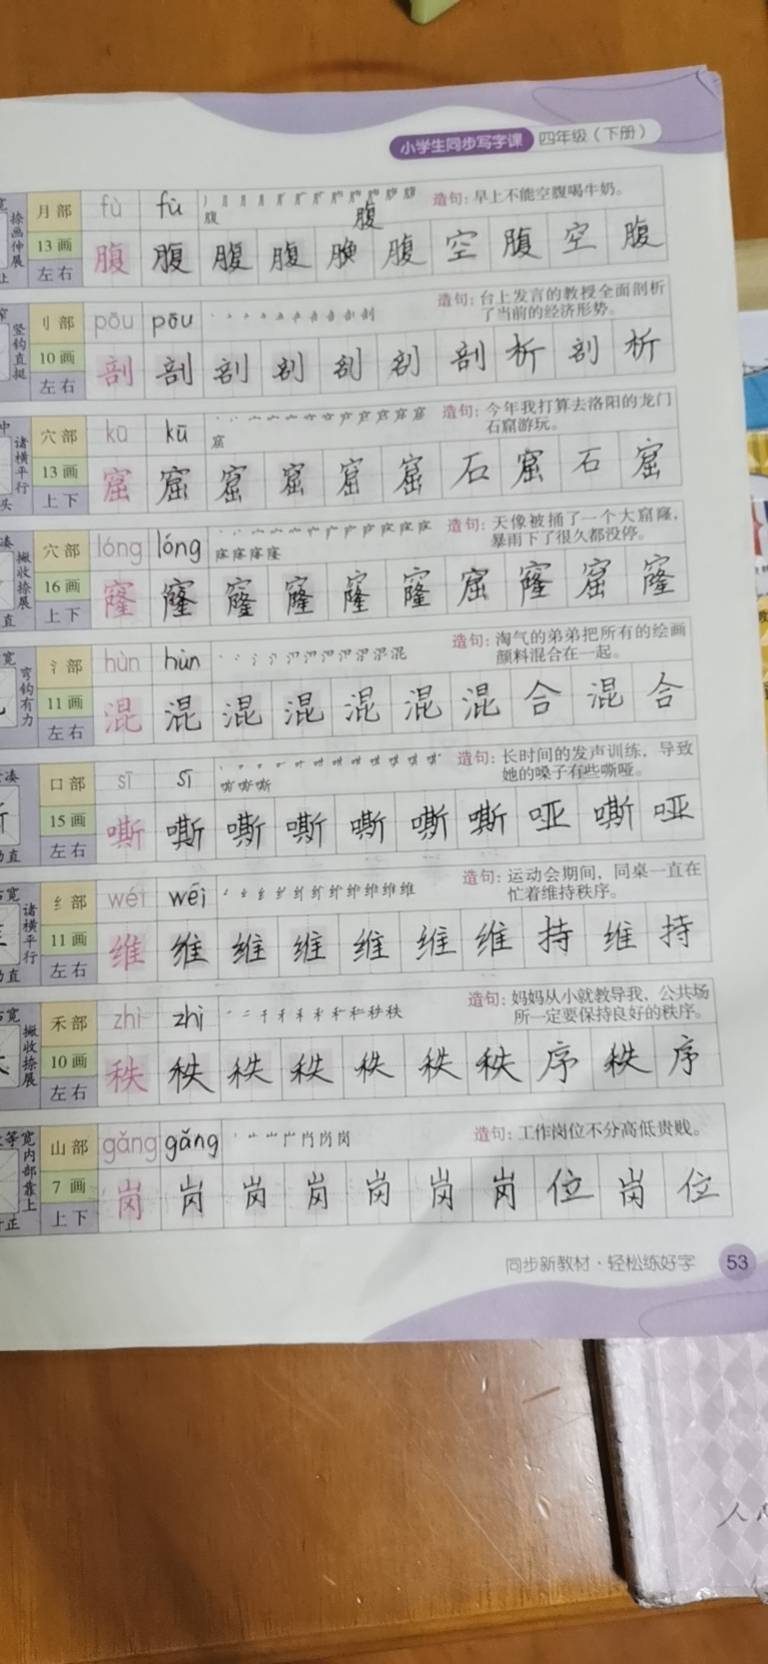 小学生同步写字课 四年级（下册）
捺画伸展 月部 fù fù 造句：早上不能空腹喝牛奶。
腹 腹
13画 腹 腹 腹 腹 腴 腹 空 腹 空 腹
左右
竖钩直挺 刂部 pōu pōu 造句：台上发言的教授全面剖析
了当前的经济形势。
10画 剖 剖 剖 剖 剖 剖 剖 析 剖 析
左右
诸横平行 穴部 kū kū 造句：今年我打算去洛阳的龙门
窟 石窟游玩。
13画 窟 窟 窟 窟 窟 窟 石 窟 石 窟
上下
撇收捺展 穴部 lóng lóng 造句：天像被捅了一个大窟窿，
暴雨下了很久都没停。
16画 窿 窿 窿 窿 窿 窿 窟 窿 窟 窿
上下
弯钩有力 氵部 hùn hùn 造句：淘气的弟弟把所有的绘画
颜料混合在一起。
11画 混 混 混 混 混 混 混 合 混 合
左右
口部 sī sī 造句：长时间的发声训练，导致
她的嗓子有些嘶哑。
15画 嘶 嘶 嘶 嘶 嘶 嘶 嘶 哑 嘶 哑
左右
诸横平行 纟部 wéi wéi 造句：运动会期间，同桌一直在
忙着维持秩序。
11画 维 维 维 维 维 维 维 持 维 持
左右
撇收捺展 禾部 zhì zhì 造句：妈妈从小就教导我，公共场
所一定要保持良好的秩序。
10画 秩 秩 秩 秩 秩 秩 秩 序 秩 序
左右
宽内部靠上 山部 gǎng gǎng 造句：工作岗位不分高低贵贱。
7画 岗 岗 岗 岗 岗 岗 岗 位 岗 位
上下
同步新教材·轻松练好字 53